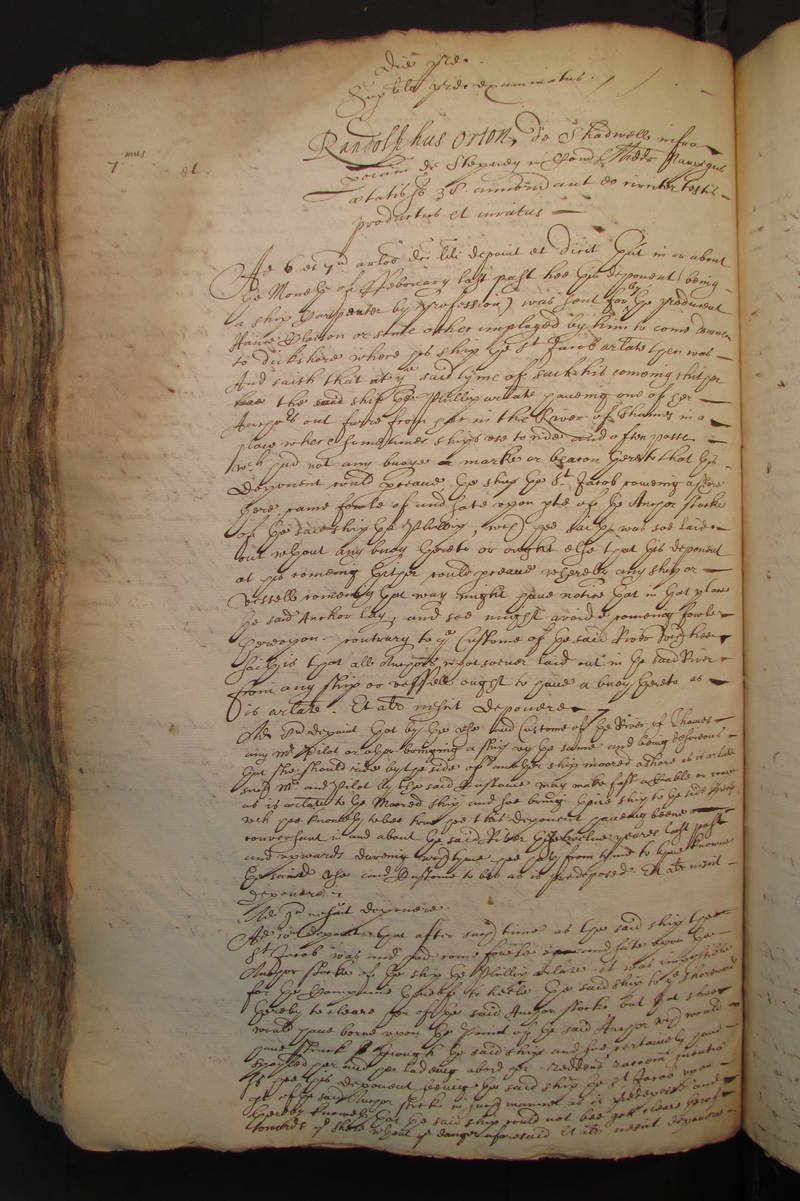 Die pre.
Sup lllo pre. examinatus.
7mus
Randolphus Orton, de Shadwell infra
pociam de Stepney in Com Midds Naupegus
ætatis 38. annorum aut eo circiter testis
productus et iuratus
Ad 6 et 7 deponit et dicit That in or about
the Moneth of February last past hee this deponent (being
a ship Carpenter by profession) was sent for by the producent
or some other imployed by him to come downe
to where his ship the St Jacob arlate then was
And saith that at ye said tyme of such his comeing thither
the said ship the Phillip arlate haveing one of her
Anchors out farre from her in the River of Thames in a
place where sometimes ships use to ride and often passe
wch had not any buoye marke or beacon thereto that this
Deponent could preave the ship the St. Jacob comeing
there came fowle of and sate upon the of the Anchor stocke
of the said ship the Phillip, wch hee saith was soe laid
out without any buoy thereto or ought else that this deponent
at his comeing thither could preave whereby any ship or
vessell comeing that way might have notice that in that place
the said Anchor lay, and soe might avoide comeing fowle
thereupon. contrary to ye Custome of the said River wch hee
saith is that all Anchors whatsoever laid out in the said River
from any ship or vessell ought to have a buoy thereto as
is arlate. Et alr nescit deponere
Ad deponit that by the use and Custome of the River of Thames
any Mr Pilot or other bringing a ship up the same and being desireous
that she should ride by the side of another ship moored
such Mr and Pilot by the said Custome may make fast a Cable or
as is arlate to the Moored ship and soe bring theire ship to the side
wch hee knoweth to bee true he this deponent haveing beene
conversant in and about the said River these twelve yeares last past
and upwards dureing wch tyme hee hath from time to tyme knowne
the said use and Custome to bee as is predeposed. Et alr nescit
deponere.
Ad nescit deponere.
Ad 10 deponit that after such time as the said ship the
St Jacob was and had come fowle and sate upon the
Anchor stocke of the ship the Phillip arlate it was impossible
for the Companie thereof to heele the said ship to ye shoreward
thereby to cleare her of the said Anchor stocke but that shee
would have borne upon the point of the said Anchor wch would
have strucke through the said ship and soe certainely have
her and her ladeing abord her. Reddens racoem
hee this deponent seeing the said ship the St Jacob upon
of the said Anchor stocke in such manner as is predeposed and
thereby knoweth that the said ship could not bee gott cleare thereof
towards ye shore without ye danger aforesaid Et alr nescit deponere